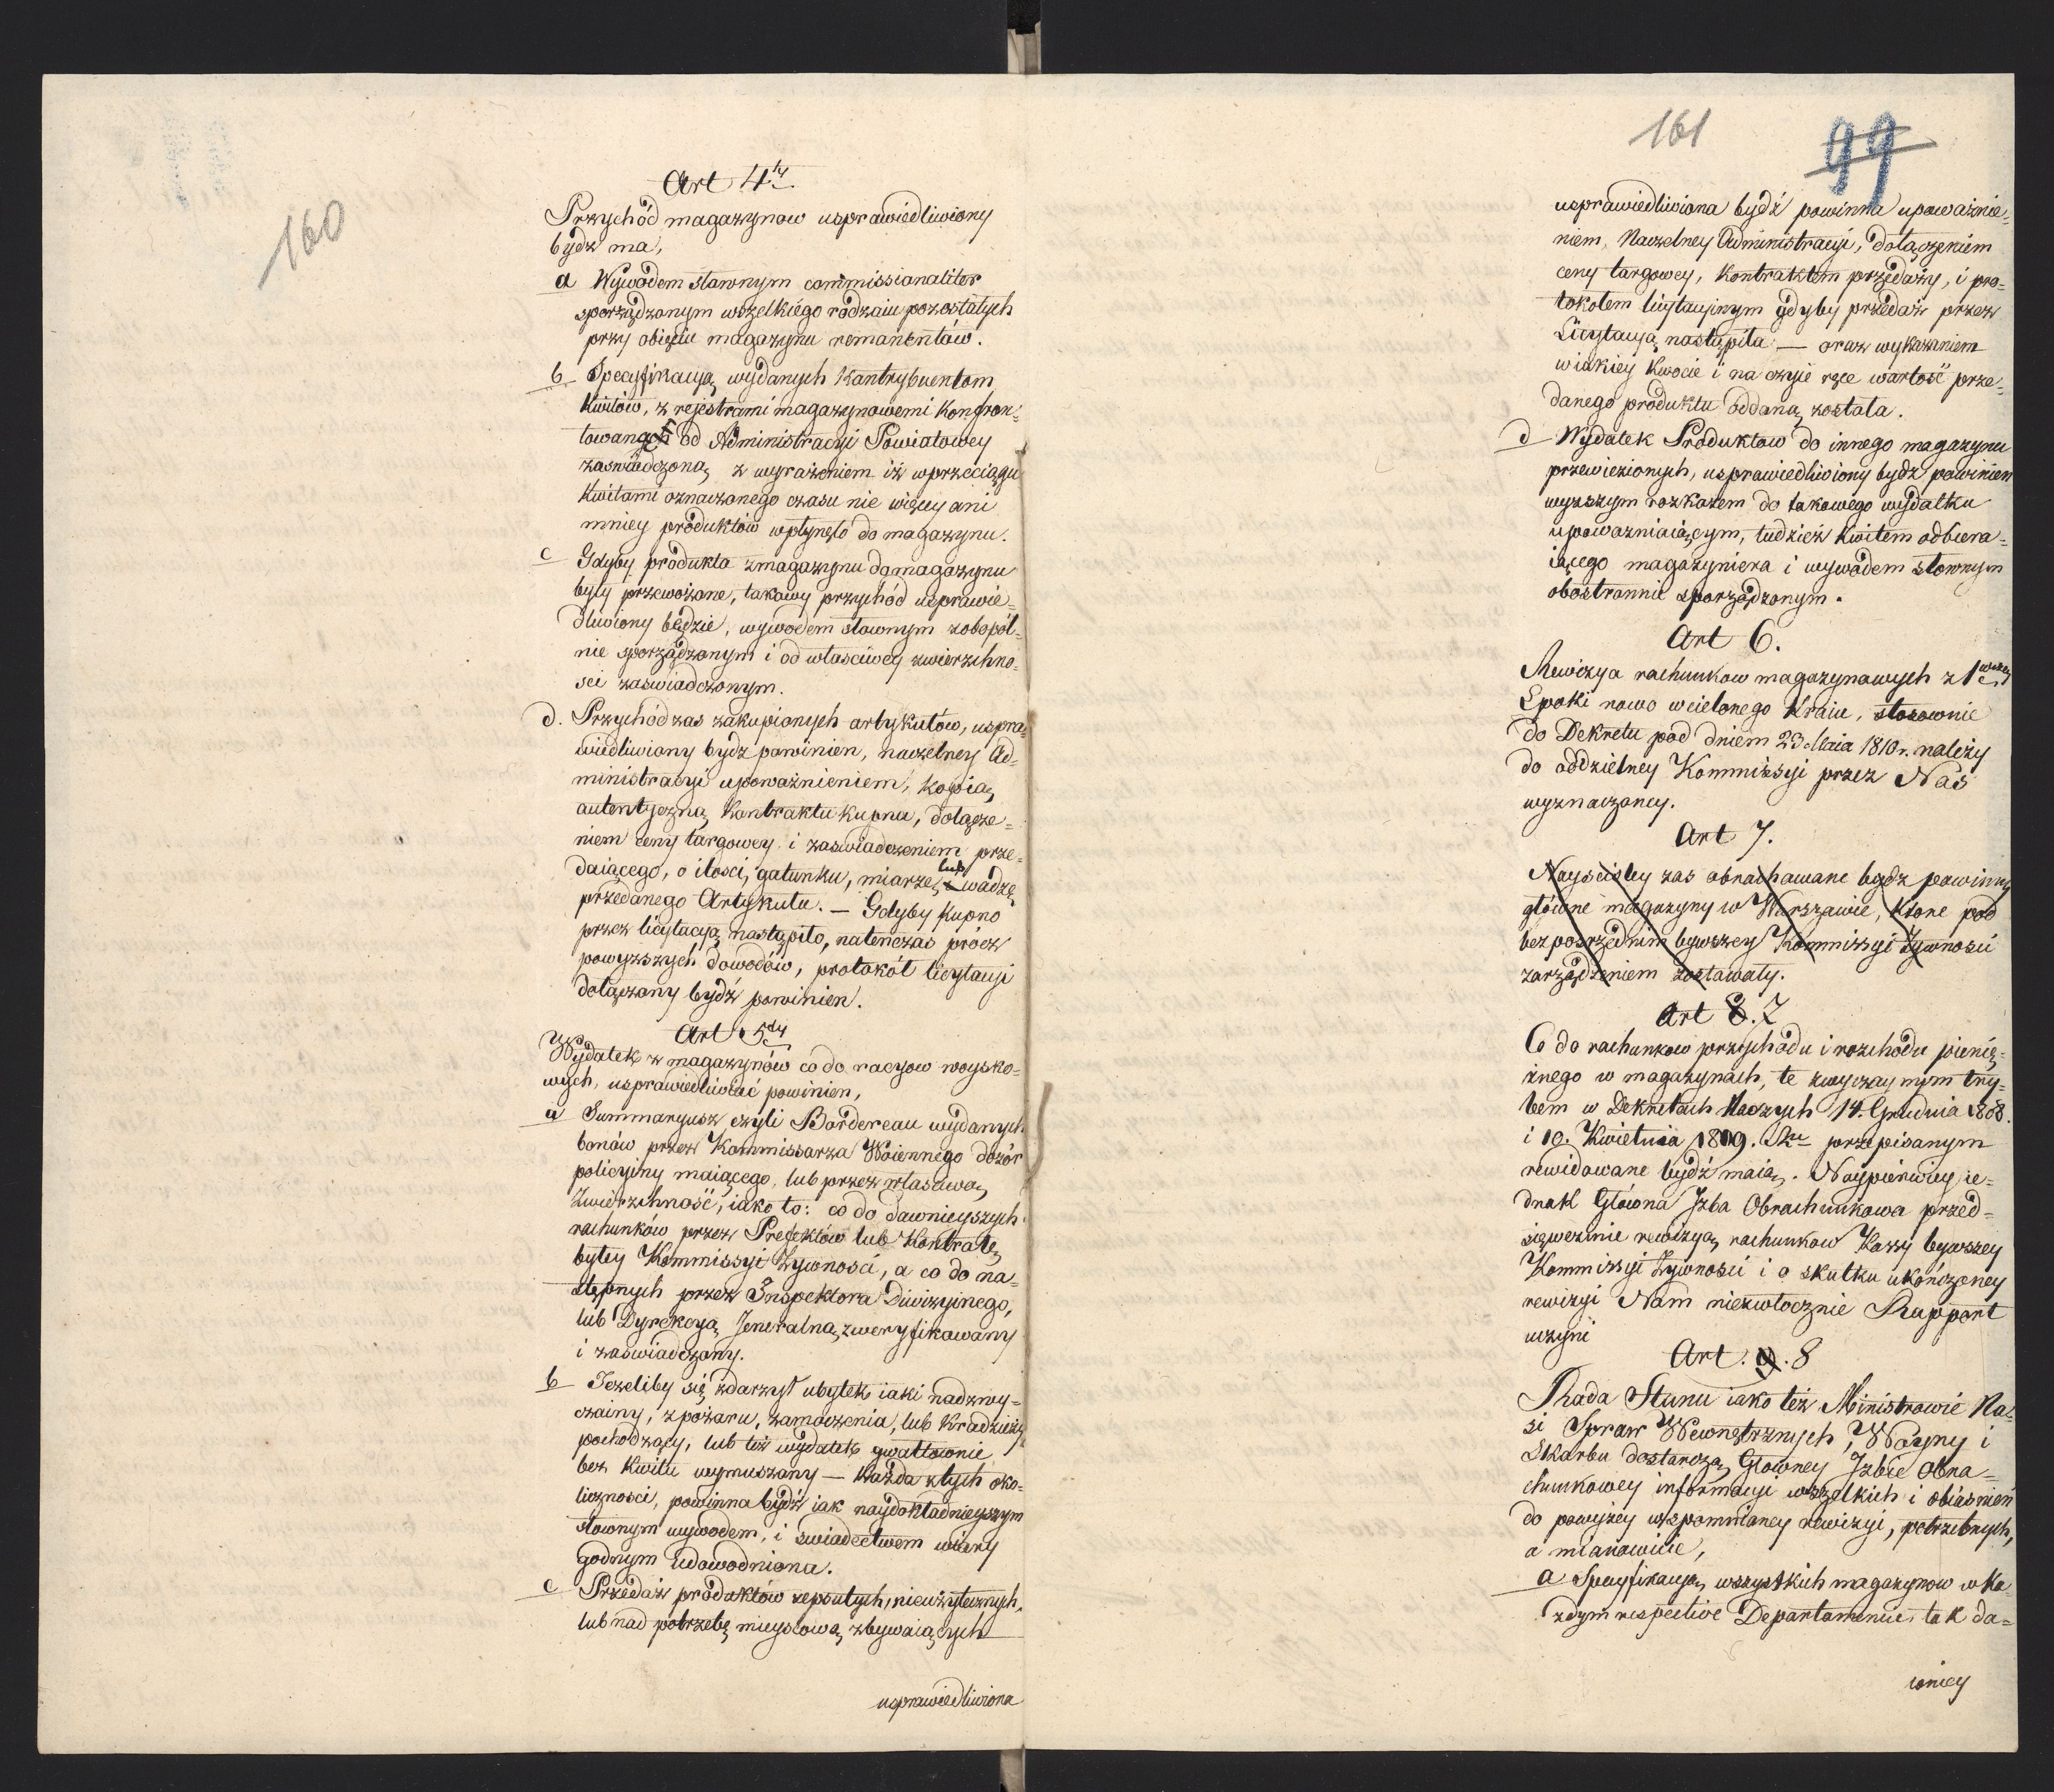 160
Art 4ty
Przychód magazynow usprawiedliwiony
bydz ma,
a Wywodem słownym commissionaliter
sporządzonym wszelkiego rodzaiu pozostałych
przy obięciu magazynu remanentów.
b Specyfikacyą wydanych Kontrybuentom
Kwitów, z rejestrami magazynowemi Konfron-
towanych od Administracyi Powiatowey
zaswiadczoną z wyrażeniem iż w przeciągu
Kwitami oznaczonego czasu nie więcey ani
mniey produktów wpłynęło do magazynu.
c Gdyby produkta z magazynu do magazynu
były przewożone, takowy przychód usprawie-
dliwiony będzie, wywodem słownym zobopól-
nie sporządzonym i od własciwey zwierzchno-
sci zaswiadczonym.
d. Przychód zas zakupionych artykułów, uspra-
wiedliwiony bydz powinien, naczelney Ad-
ministracyi upoważnieniem, Kopią
autentyczną Kontraktu kupna, dołącze-
niem ceny targowey i zaswiadczeniem prze-
daiącego, o ilosci, gatunku, miarze, lub wadze
przedanego Artykułu. — Gdyby Kupno
przez licytacyą nastąpiło, natenczas prócz
powyższych dowodów, protokół licytacyi
dołączony bydź powinien.
Art 5ty
Wydatek z magazynów co do racyow woysko-
wych, usprawiedliwiać powinien,
a Summaryusz czyli Bordereau wydanych
bonów przez Kommissarza Woiennego dozór
policyiny maiącego, lub przez własciwą
Zwierzchność, iako to: co do dawnieyszych
rachunków przez Prefektów lub Kontrolę
byłey Kommissyi Żywnosci, a co do na-
stępnych przez Inspektora Diwizyinego,
lub Dyrekcyą Jeneralną, zweryfikowany
i zaswiadczony.
b Jeżeliby się zdarzył ubytek iaki nadzwy-
czainy, z pożaru, zamoczenia, lub Kradzieży
pochodzący, lub też wydatek gwałtownie
bez Kwitu wymuszony — Każda z tych oko-
licznosci, powinna bydź iak naydokładnieyszym
słownym wywodem, i swiadectwem wiary
godnym udowodniona.
c Przedaż produktów zepsutych, nieużytecznych,
lub nad potrzebę mieyscową zbywaiących
usprawiedliwiona
161 99
usprawiedliwiona bydź powinna upoważnie-
niem, Naczelney Administracyi, dołączeniem
ceny targowey, Kontraktem przedaży, i pro-
tokołem licytacyinym gdyby przedaż przez
Licytacyą nastąpiła — oraz wykazaniem
w iakiey Kwocie i na czyie ręce wartość prze-
danego produktu oddaną została.
d Wydatek Produktow do innego magazynu
przewiezionych, usprawiedliwiony bydz powinien
wyzszym rozkazem do takowego wydatku
upowazniaiącym, tudzież Kwitem odbiera-
iącego magazyniera i wywodem słownym
obostronnie sporządzonym.
Art 6.
Rewizya rachunkow magazynowych z 1wszey
Epoki nowo wcielonego Kraiu, stosownie
do Dekretu pod dniem 23 Maia 1810 r. należy
do oddzielney Kommissyi przez Nas
wyznaczoney.
Art 7.
Nayscisley zas obrachowane bydz powinny
główne magazyny w Warszawie, które pod
bezposrzednim bywszey Kommissyi żywnosci
zarządzeniem zostawały.
Art 8. 7
Co do rachunkow przychodu i rozchodu pienię-
żnego w magazynach, te zwyczaynym try-
bem w Dekretach Naszych 14. Grudnia 1808.
i 10. Kwietnia 1809. Rku przepisanym
rewidowane bydź maią. Naypierwiey ie-
dnak Główna Izba Obrachunkowa przed-
sięwezmie rewizyą rachunkow Kassy bywszey
Kommissyi Żywnosci i o skutku ukończoney
rewizyi Nam niezwłocznie Rapport
uczyni
Art. 9. 8
Rada Stanu iako też Ministrowie Na-
si Spraw Wewnętrznych, Woyny i
Skarbu dostarczą Głowney Izbie Obra-
chunkowey informacyi wszelkich i obiasnień
do powyżey wspomnianey rewizyi, potrzebnych,
a mianowicie,
a Specyfikacyą wszystkich magazynow w Ka-
żdym respective Departamencie, tak da-
wniey